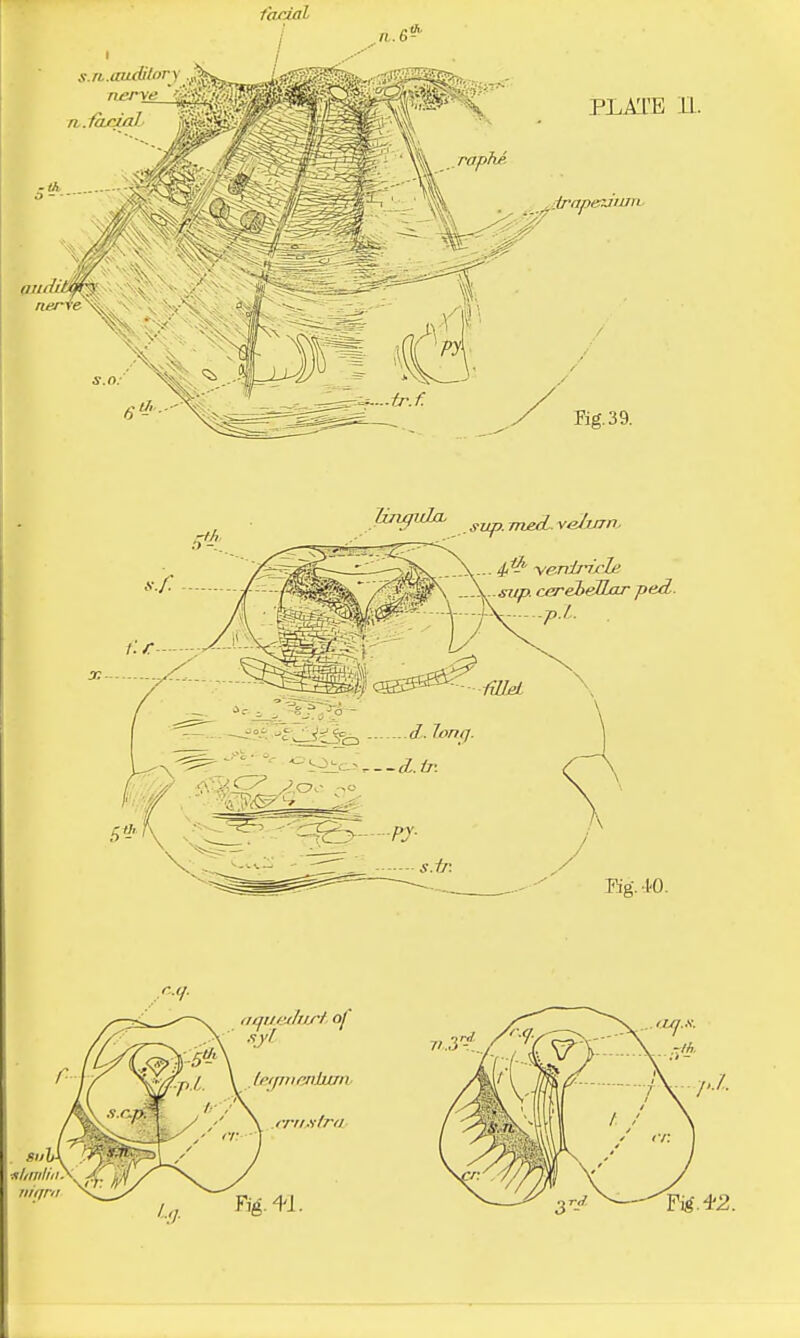 PLATE 11.
facial
n. 6th
s.n. auditory
nerve
n. facial
raphé
5th
trapezium
auditory
nerve
py
s.o.
tr. f.
6th
Fig. 39.
lingula
sup. med. velum
5th
4th ventricle
s. f.
sup. cerebellar ped.
p. l.
f. r.
x.
fillet
d. long.
d. tr.
5th
py.
s. tr.
Fig. 40.
c. q.
aqueduct of
syl
5th
f
p. l.
tegmentum
s. c. p.
t.
crustra
cr.
s. n.
substantia
nigra
cr.
l. g.
Fig. 41.
n. 3rd
c. q.
aq. s.
5th
f
p. l.
s. n.
t
cr.
cr.
3rd
Fig. 42.